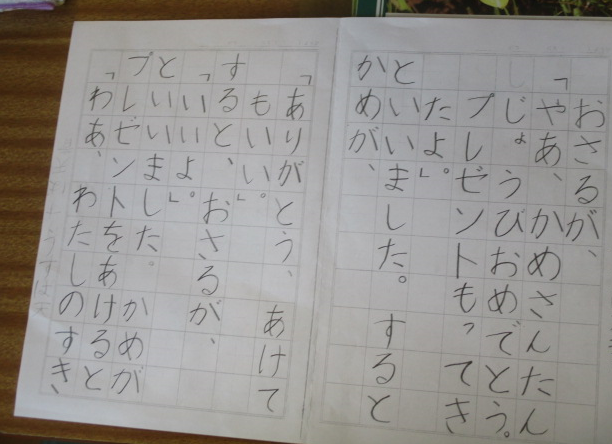 おさるが、
「やあ、かめさんたん
じょうびおめでとう。
プレゼントもってき
たよ」。
といいました。すると
かめが、
「ありがとう、あけて
もいい」。
すると、おさるが、
「いいよ」。
といいました。かめが
プレゼントをあけると
「わあ、わたしのすき